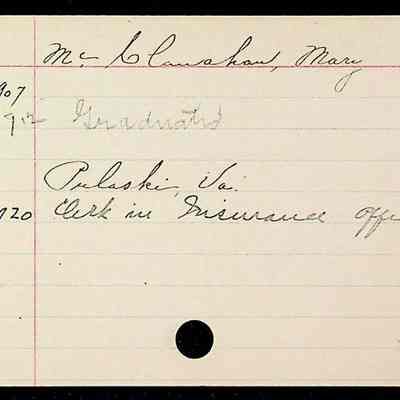 Mc Clanahan, Mary
907
912 Graduated
Pulaski, Va.
920 Clerk in Insurance offi